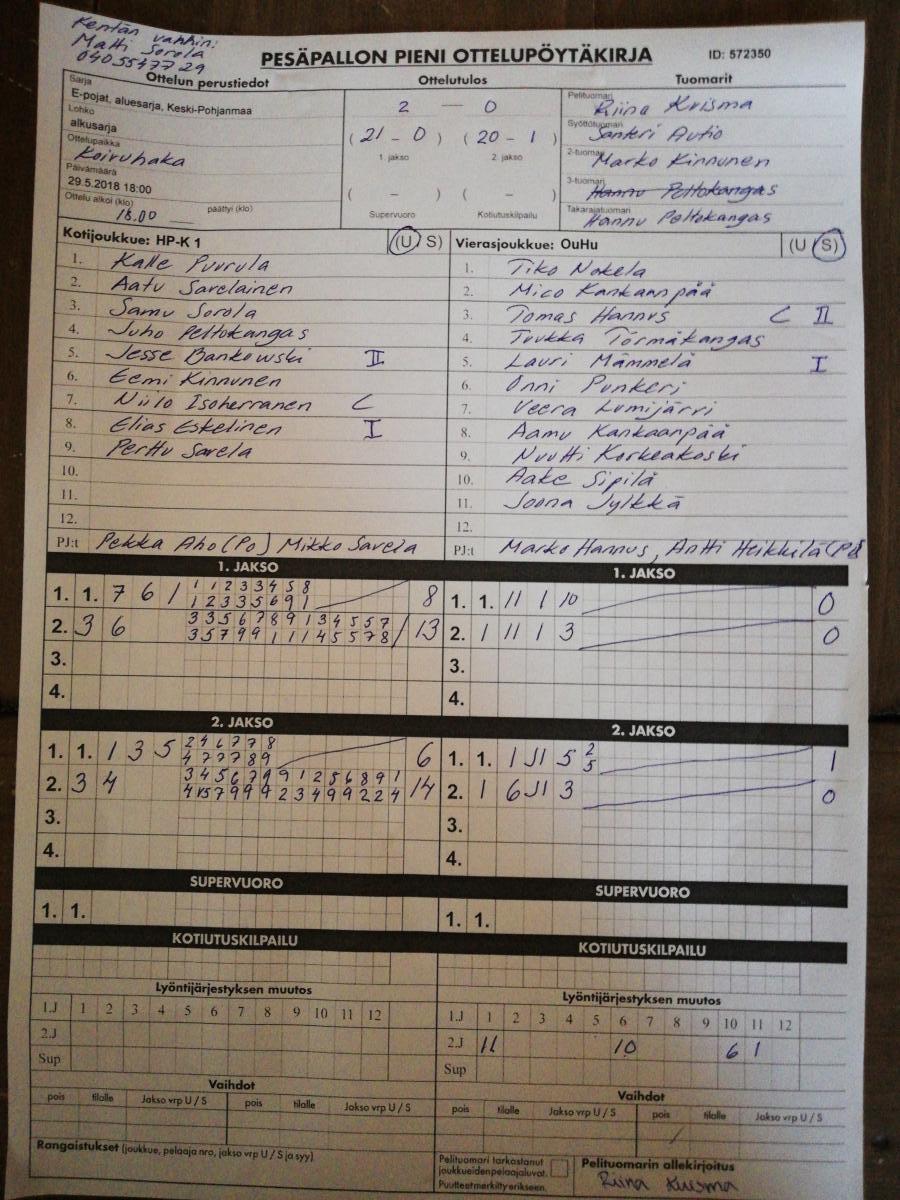 Kentän vanhin:
Matti Sorola
0405547729
PESÄPALLON PIENI OTTELUPÖYTÄKIRJA
ID: 572350
Ottelun perustiedot
Sarja
E-pojat, aluesarja, Keski-Pohjanmaa
Lohko
alkusarja
Ottelupaikka
Koivuhaka
Päivämäärä
29.5.2018 18:00
Ottelu alkoi (klo) 18.00 päättyi (klo)
Ottelutulos
2 — 0
(21 - 0) (20 - 1)
1. jakso 2. jakso
( - ) ( - )
Supervuoro Kotiutuskilpailu
Tuomarit
Pelituomari
Riina Kuisma
Syöttötuomari
Santeri Autio
2-tuomari
Marko Kinnunen
3-tuomari
Hannu Peltokangas
Takarajatuomari
Hannu Peltokangas
Kotijoukkue: HP-K 1 (U S)
1. Kalle Puurula
2. Aatu Savelainen
3. Samu Sorola
4. Juho Peltokangas
5. Jesse Bankowski II
6. Eemi Kinnunen
7. Niilo Isoherranen C
8. Elias Eskelinen I
9. Perttu Savela
10.
11.
12.
PJ:t Pekka Aho (Po) Mikko Savela
Vierasjoukkue: OuHu (U S)
1. Tiko Nokela
2. Mico Kankaanpää
3. Tomas Hannus C II
4. Tuukka Törmäkangas
5. Lauri Mämmelä I
6. Onni Punkeri
7. Veera Lumijärvi
8. Aamu Kankaanpää
9. Nuutti Korkeakoski
10. Aake Sipilä
11. Joona Jylkkä
12.
PJ:t Marko Hannus, Antti Heikkilä (Po)
1. JAKSO
1. 1. 7 6 1 1 1 2 3 3 4 5 8 8
1 2 3 3 5 6 9 1
2. 3 6 3 3 5 6 7 8 9 1 3 4 5 5 7 13
3 5 7 9 9 1 1 1 4 5 5 7 8
3.
4.
1. JAKSO
1. 1. 11 1 10 0
2. 1 11 1 3 0
3.
4.
2. JAKSO
1. 1. 1 3 5 2 4 6 7 7 8 6
4 7 7 7 8 9
2. 3 4 3 4 5 6 7 9 9 1 2 5 6 8 9 1 14
4 5 7 9 9 9 2 3 4 9 9 2 2 4
3.
4.
2. JAKSO
1. 1. 1 11 5 2 1
5
2. 1 6 11 3 0
3.
4.
SUPERVUORO
1. 1.
SUPERVUORO
1. 1.
KOTIUTUSKILPAILU
KOTIUTUSKILPAILU
Lyöntijärjestyksen muutos
1.J 1 2 3 4 5 6 7 8 9 10 11 12
2.J
Sup
Lyöntijärjestyksen muutos
1.J 1 2 3 4 5 6 7 8 9 10 11 12
2.J 11 10 6 1
Sup
Vaihdot
pois tilalle Jakso vrp U / S pois tilalle Jakso vrp U / S
Vaihdot
pois tilalle Jakso vrp U / S pois tilalle Jakso vrp U / S
Rangaistukset (joukkue, pelaaja nro, jakso vrp U / S ja syy)
Pelituomari tarkastanut
joukkueiden pelaajaluvat.
Puutteet merkitty erikseen.
Pelituomarin allekirjoitus
Riina Kuisma